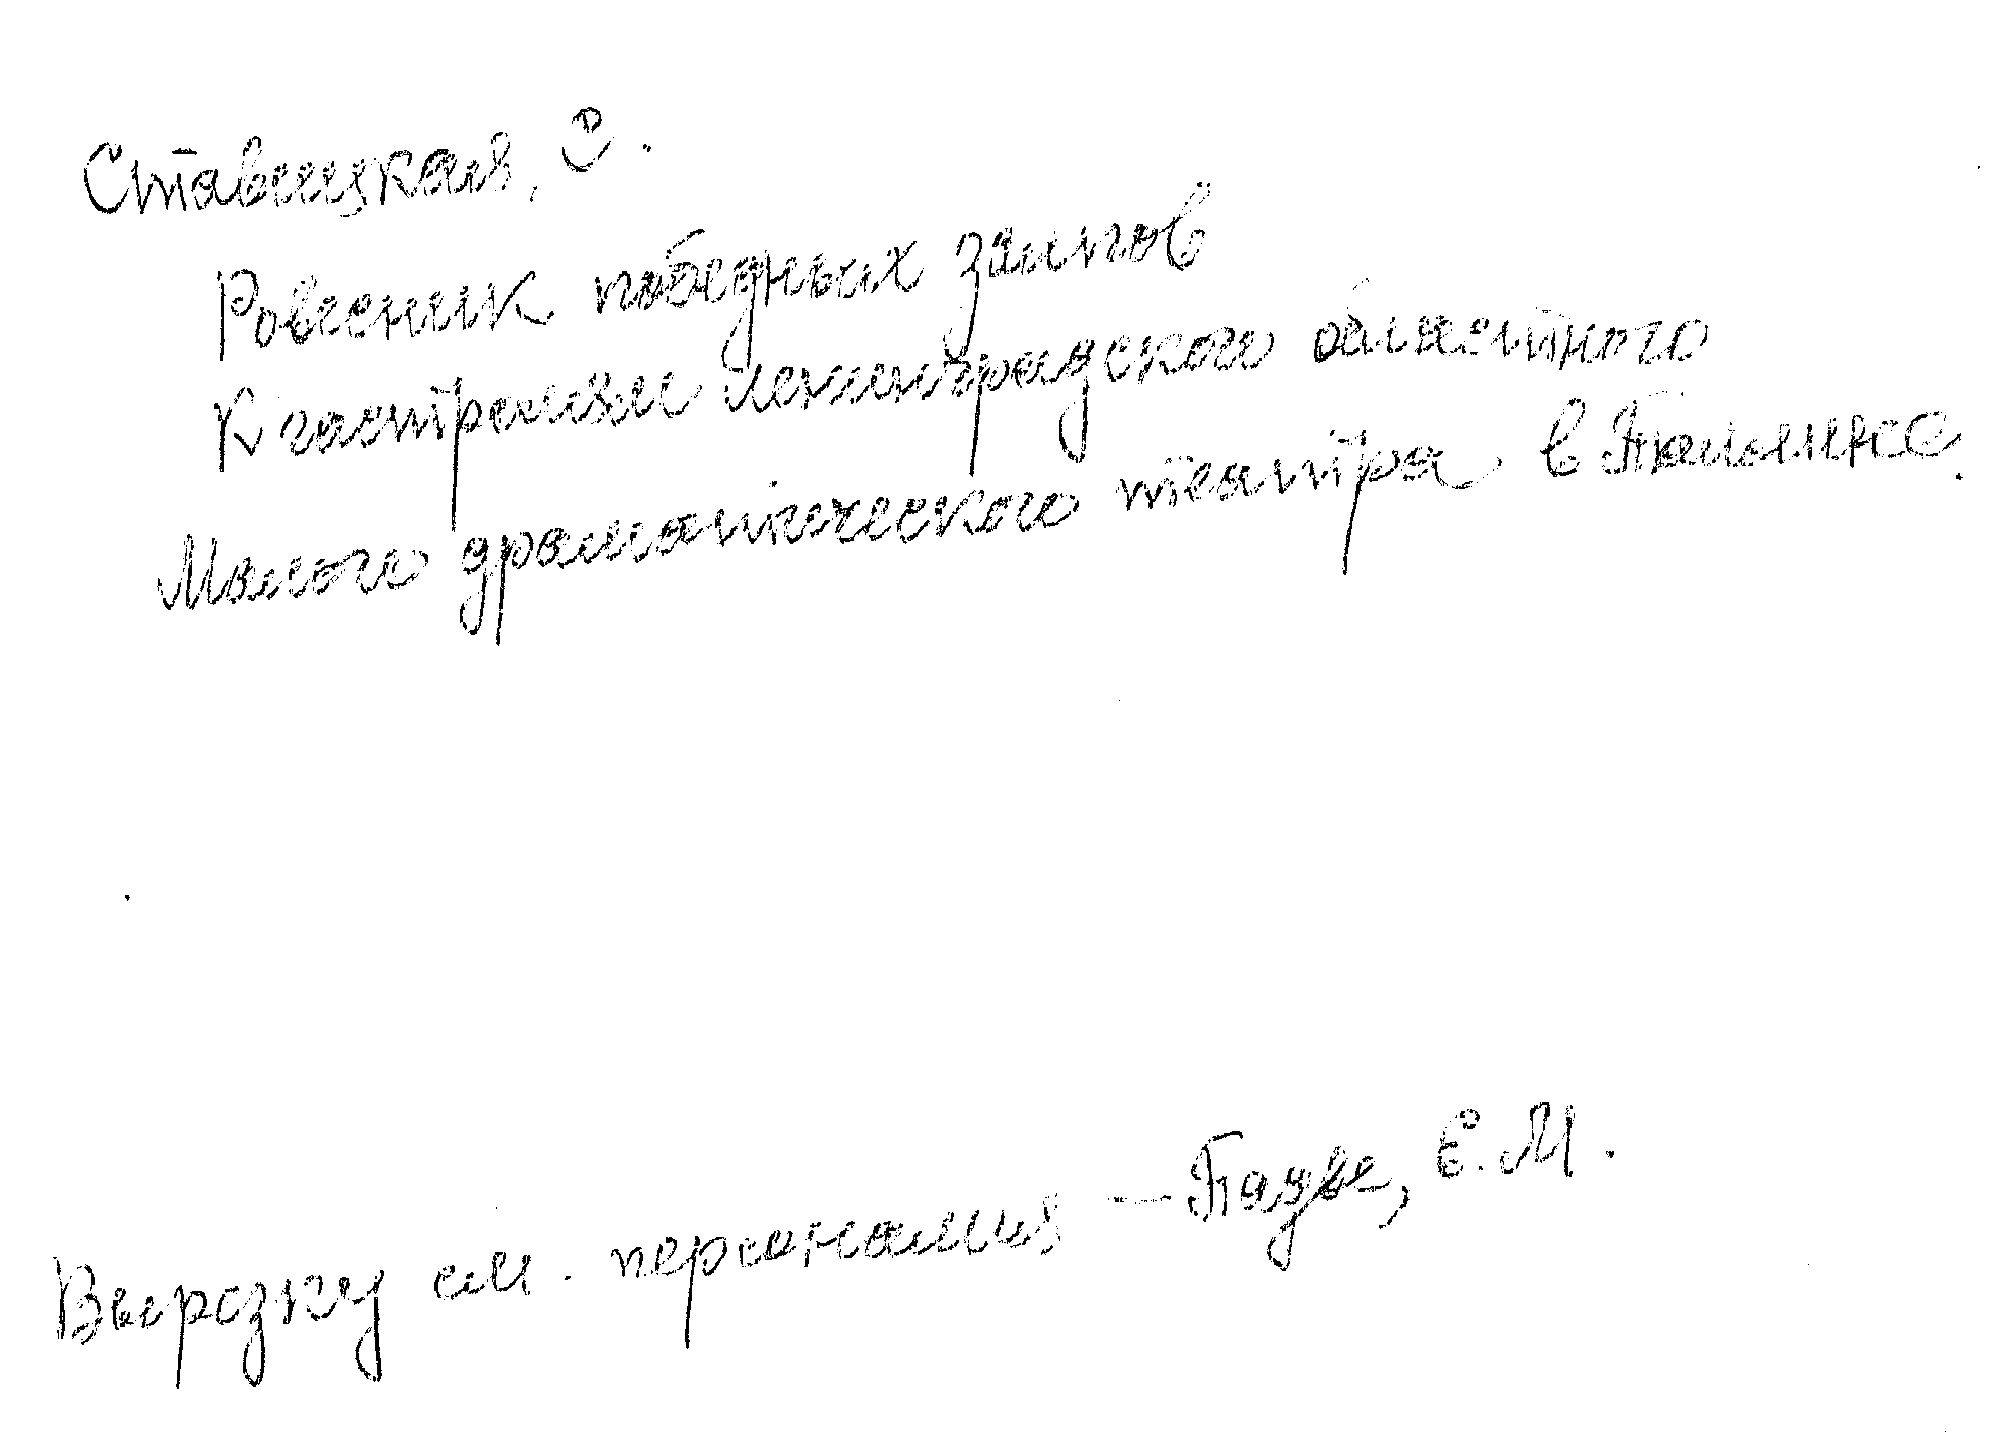 Ставицкая, Э.
Ровесник победных залпов
К гастролям Ленинградского областного
Малого драматического театра в Таллине.
Вырезку см. персоналия — Падве, Е.М.